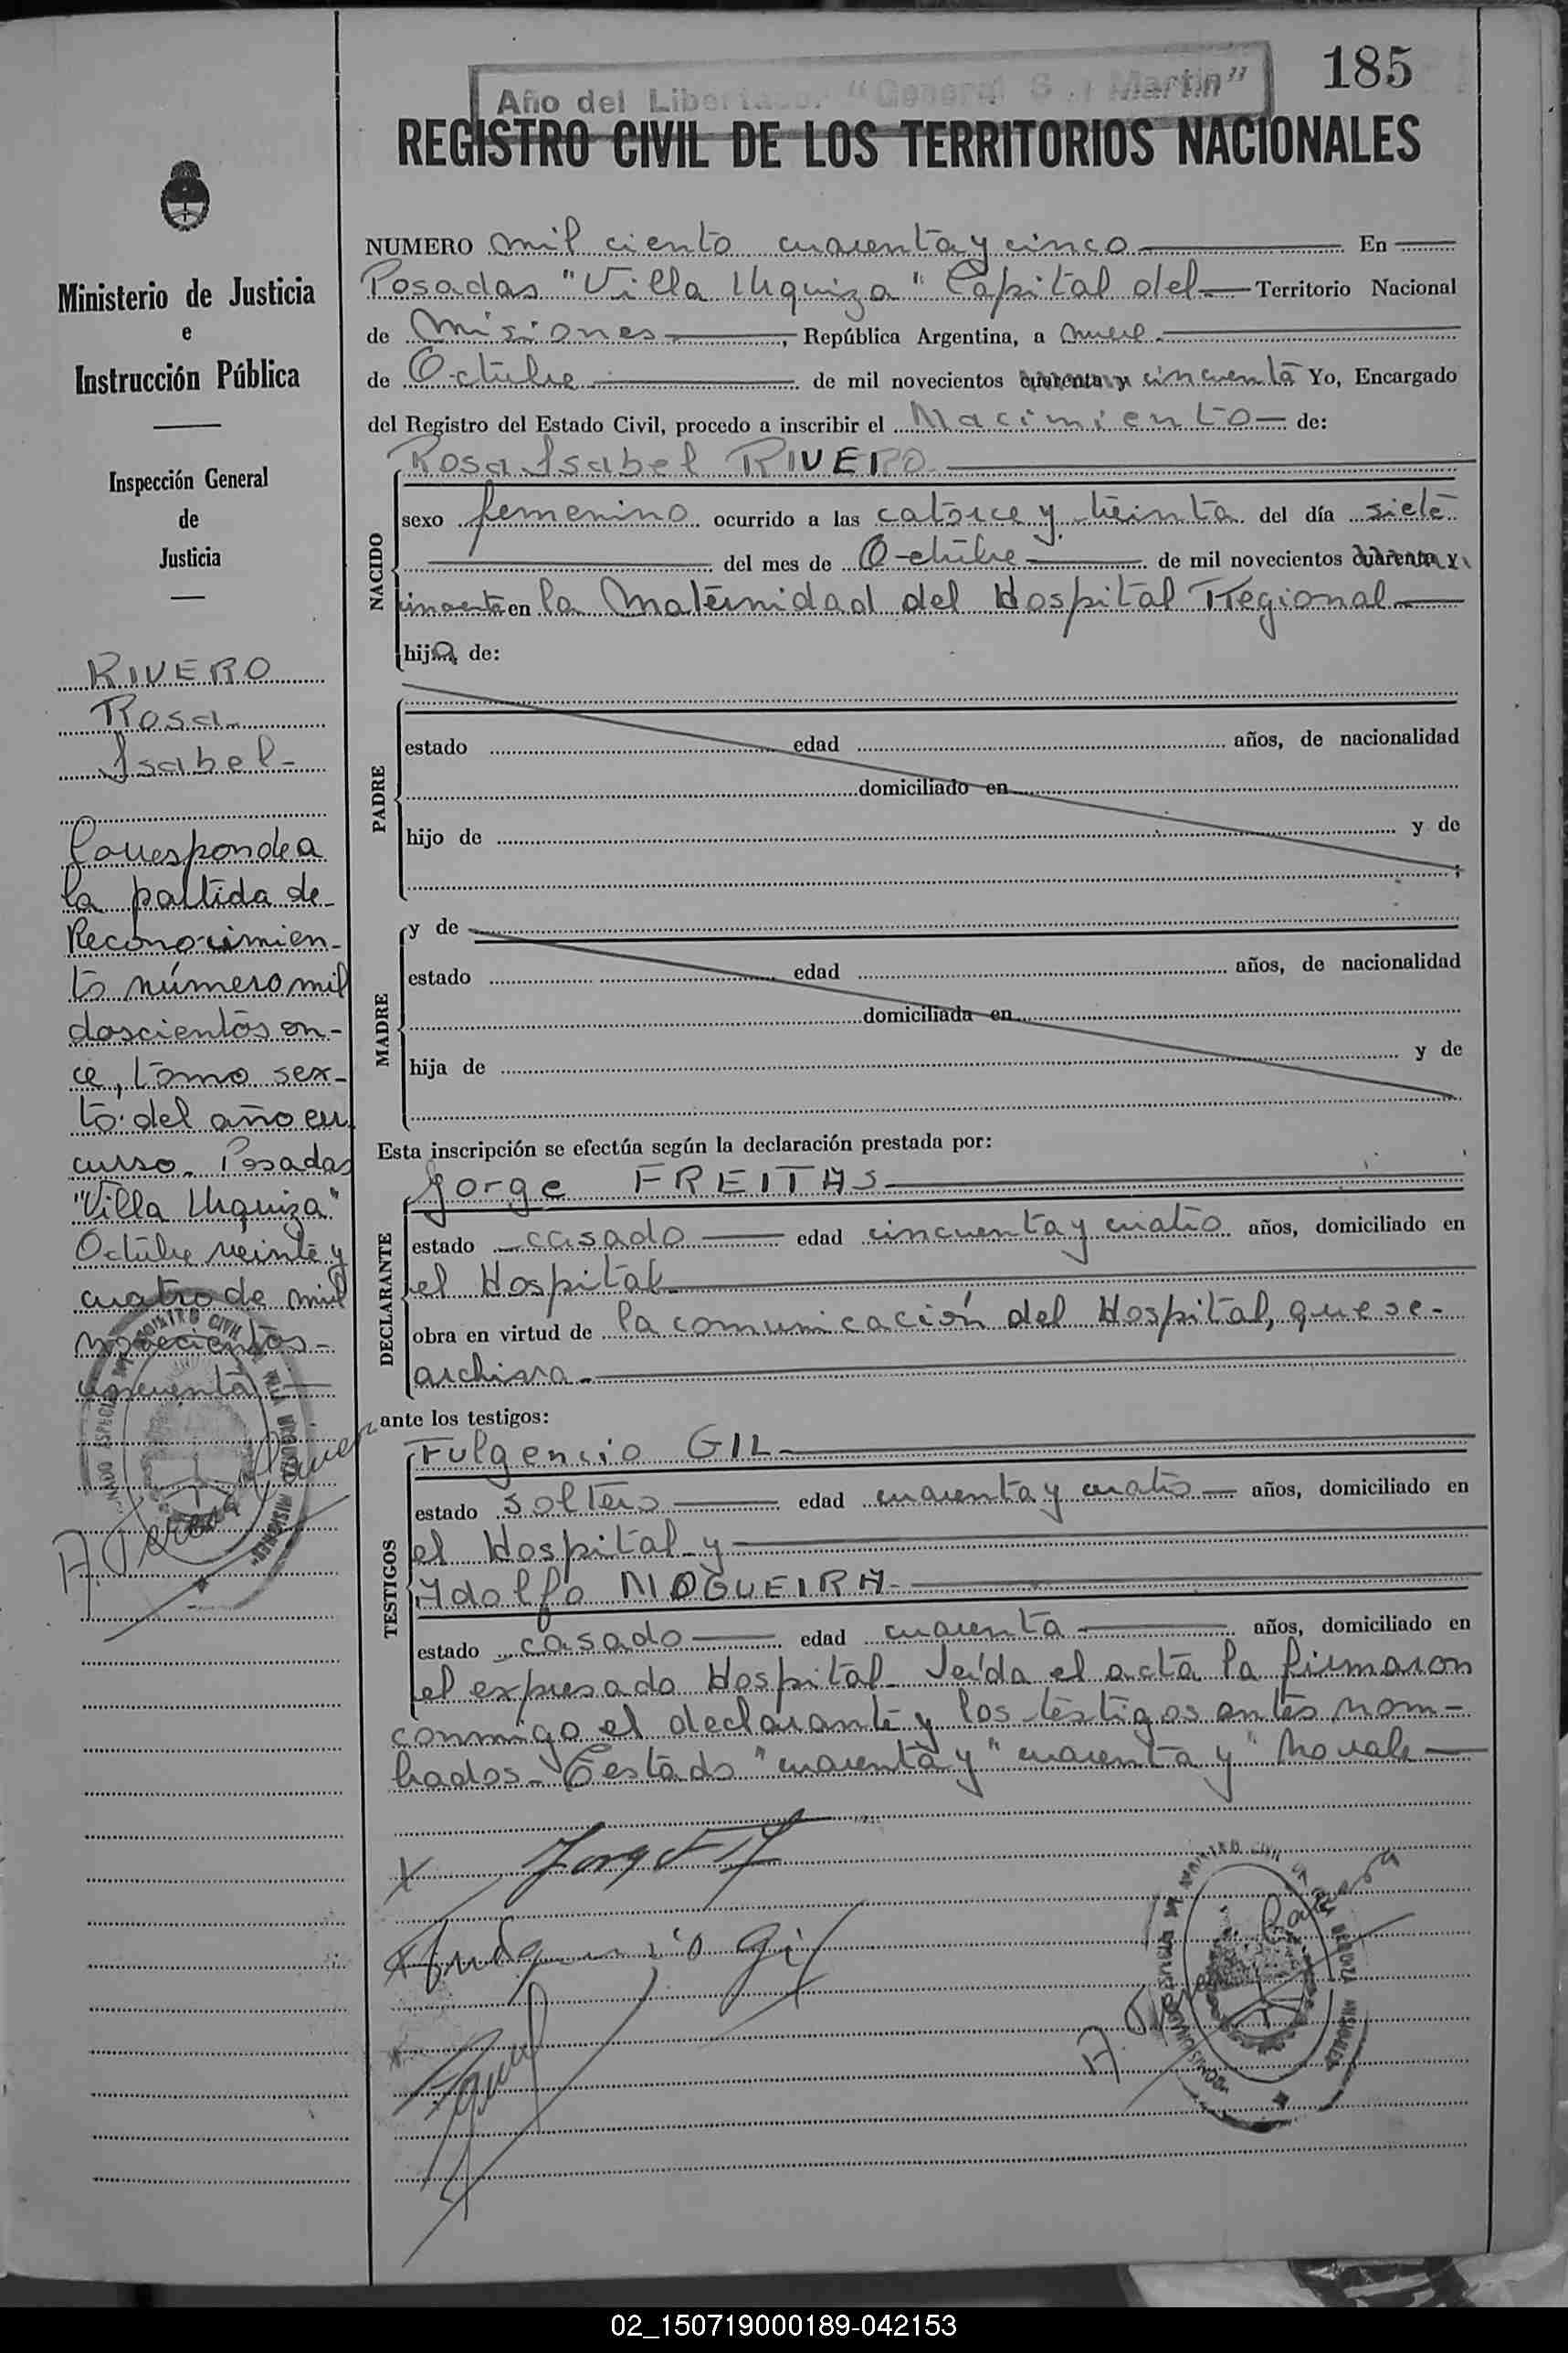 185
Año del Libertador "General San Martín"
REGISTRO CIVIL DE LOS TERRITORIOS NACIONALES
Ministerio de Justicia
e
Instrucción Pública
Inspección General
de
Justicia
RIVERO
Rosa
Isabel-
Corresponde a
la partida de
Reconocimien-
to número mil
doscientos on-
ce, tomo sex-
to del año en
curso. Posadas
"Villa Urquiza"
Octubre veinte y
cuatro de mil
novecientos-
cincuenta
NUMERO mil ciento cuarenta y cinco En
Posadas "Villa Urquiza" Capital del Territorio Nacional
de Misiones, República Argentina, a nueve
de Octubre de mil novecientos cuarenta y cincuenta Yo, Encargado
del Registro del Estado Civil, procedo a inscribir el Nacimiento de:
Rosa Isabel RIVERO
NACIDO
sexo femenino ocurrido a las catorce y treinta del día siete
del mes de Octubre de mil novecientos cuarenta y
cincuenta en la Maternidad del Hospital Regional
hija de:
PADRE
estado edad años, de nacionalidad
domiciliado en
hijo de y de
;
MADRE
y de
estado edad años, de nacionalidad
domiciliada en
hija de y de
Esta inscripción se efectúa según la declaración prestada por:
DECLARANTE
Jorge FREITAS
estado casado edad cincuenta y cuatro años, domiciliado en
el Hospital
obra en virtud de la comunicación del Hospital, que se-
archiva.
ante los testigos:
TESTIGOS
Fulgencio GIL
estado soltero edad cuarenta y cuatro años, domiciliado en
el Hospital y
Adolfo NOGUEIRA
estado casado edad cuarenta años, domiciliado en
el expresado Hospital. Leída el acta la firmaron
conmigo el declarante y los testigos antes nom-
brados. Testado "cuarenta y" cuarenta y" No vale
Fulgencio Gil
02_150719000189-042153